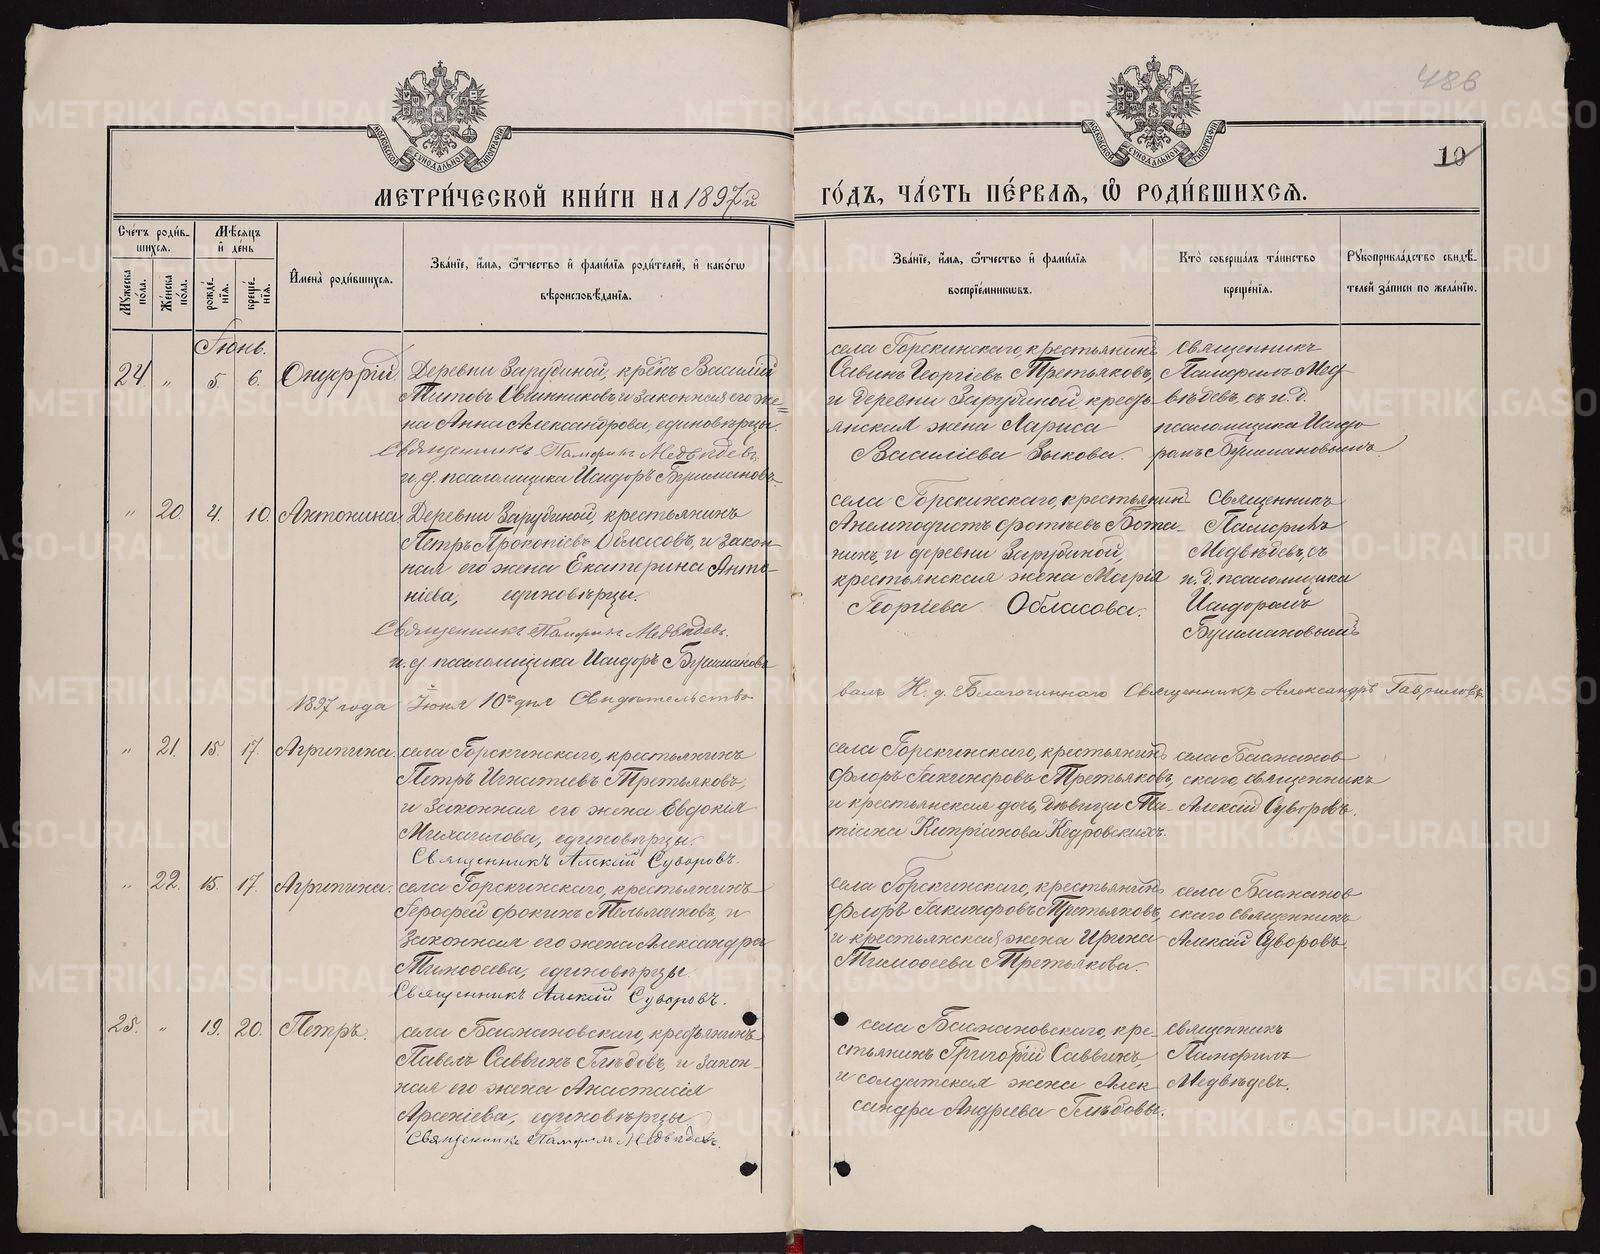 486
10
МОСКОВСКОЙ СУНОДАЛЬНОЙ ТИПОГРАФІИ
МОСКОВСКОЙ СУНОДАЛЬНОЙ ТИПОГРАФІИ
МЕТРИ́ЧЕСКОЙ КНИ́ГИ НА 1897й
ГО́ДЪ, ЧА́СТЬ ПЕ́РВАѦ, Ѡ҆ РОДИ́ВШИХСѦ.
Сче́тъ роди́в-
шихся.
Мѣ́сяцъ
и҆ де́нь
Му́жеска
по́ла.
Же́нска
по́ла.
рожде́-
нїя.
креще́-
нїя.
И҆мена̀ роди́вшихся.
Зва́нїе, и҆́мя, ѻ҆́тчество и҆ фами́лїя роди́телей, и҆ како́гѡ
вѣроисповѣ́данїя.
Зва́нїе, и҆́мя, ѻ҆́тчество и҆ фами́лїя
воспрїе́мниковъ.
Кто̀ соверша́лъ та́инство
креще́нїя.
Рукоприкла́дство свидѣ́-
телей за́писи по жела́нїю.
Іюнь.
24 " 5. 6. Онуфрій
Деревни Зарубиной, крес-нъ Василій
Титовъ Овчинниковъ и законная его же=
на Анна Александрова, единовѣрцы.
Священникъ Памфилъ Медвѣдевъ.
и. д. псаломщика Исидоръ Бушмановъ.
села Горскинскаго, крестьянинъ
Савинъ Георгіевъ Третьяковъ,
и деревни Зарубиной кресть-
янская жена Лариса
Василіева Зыкова.
Священникъ
Памфилъ Мед-
вѣдевъ, съ и. д.
псаломщика Исидо
ромъ Бушмановымъ.
" 20. 4. 10. Антонина
Деревни Зарубиной, крестьянинъ
Петръ Прокопіевъ Обласовъ, и закон-
ная его жена Екатерина Анто-
ніева, единовѣрцы.
Священникъ Памфилъ Медвѣдевъ.
и. д. псаломщика Исидоръ Бушмановъ
села Горскинскаго, крестьянинъ
Анемподистъ Фотіевъ Божа-
нинъ, и деревни Зарубиной,
крестьянская жена Марія
Георгіева Обласова.
Священникъ
Памфилъ
Медвѣдевъ, съ
и. д. псаломщика
Исидоромъ
Бушмановымъ
1897 года Іюня 10го дня Свидѣтельство-
валъ И. д. Благочиннаго Священникъ Александръ Гавриловъ.
" 21. 15. 17. Агрипина.
села Горскинскаго, крестьянинъ
Петръ Игнатіевъ Третьяковъ,
и законная его жена Евдокія
Михаилова, единовѣрцы.
Священникъ Алексій Суворовъ.
села Горскинскаго, крестьянинъ
Флоръ Іакинфовъ Третьяковъ,
и крестьянская дочь, дѣвица Та-
тіана Кипріанова Кедровскихъ.
села Бажанов
скаго, священникъ
Алексій Суворовъ.
" 22. 15. 17. Агрипина.
села Горскинскаго, крестьянинъ
Іерофей Фокинъ Тельминовъ, и
законная его жена Александра
Тимофеева, единовѣрцы.
Священникъ Алексій Суворовъ.
села Горскинскаго, крестьянинъ
Флоръ Іакинфовъ Третьяковъ,
и крестьянская жена Ирина
Тимофеева Третьякова.
села Бажанов
скаго священникъ
Алексій Суворовъ.
25. " 19. 20. Петръ.
села Бажановскаго, крестьянинъ
Павелъ Саввинъ Глѣбовъ, и закон-
ная его жена Анастасія
Арсеніева, единовѣрцы
Священникъ Памфилъ Медвѣдевъ.
села Бажановскаго, кре-
стьянинъ Григорій Саввинъ,
и солдатская жена Алек
сандра Андреева Глѣбовы.
священникъ
Памфилъ
Медвѣдевъ.
METRIKI.GASO-URAL.RU